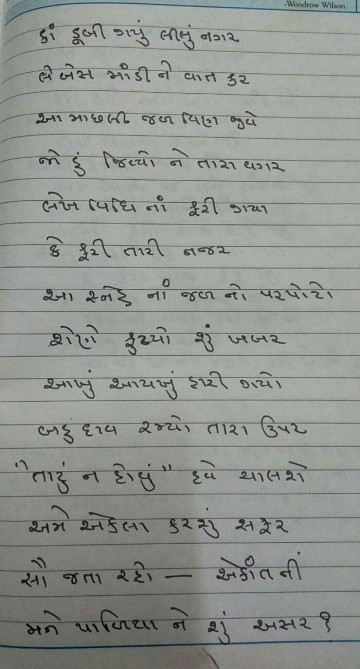 -Woodrow Wilson.
કાં ડૂબી ગયું લીલું નગર
લે બેસ માંડી ને વાત કર
આ માછલી જળ વિણ જીવે
જો હું જિવ્યો ને તારા વગર
લેખ વિધિ નાં ફૂરી ગયા
કે ફૂરી તારી નજર
આ સ્નેહ નાં જળ નો પરપોટો
કોણે ફુટ્યો શું ખબર
આખું આયખું હારી ગયો
બહું દાવ રમ્યો તારા ઉપર
"તારું ન હોવું" હવે ચાલશે
અમે એકલા કરશું સફર
સૌ જતા રહો — એકાંત ની
મને પાળિયા ને શું અસર ?